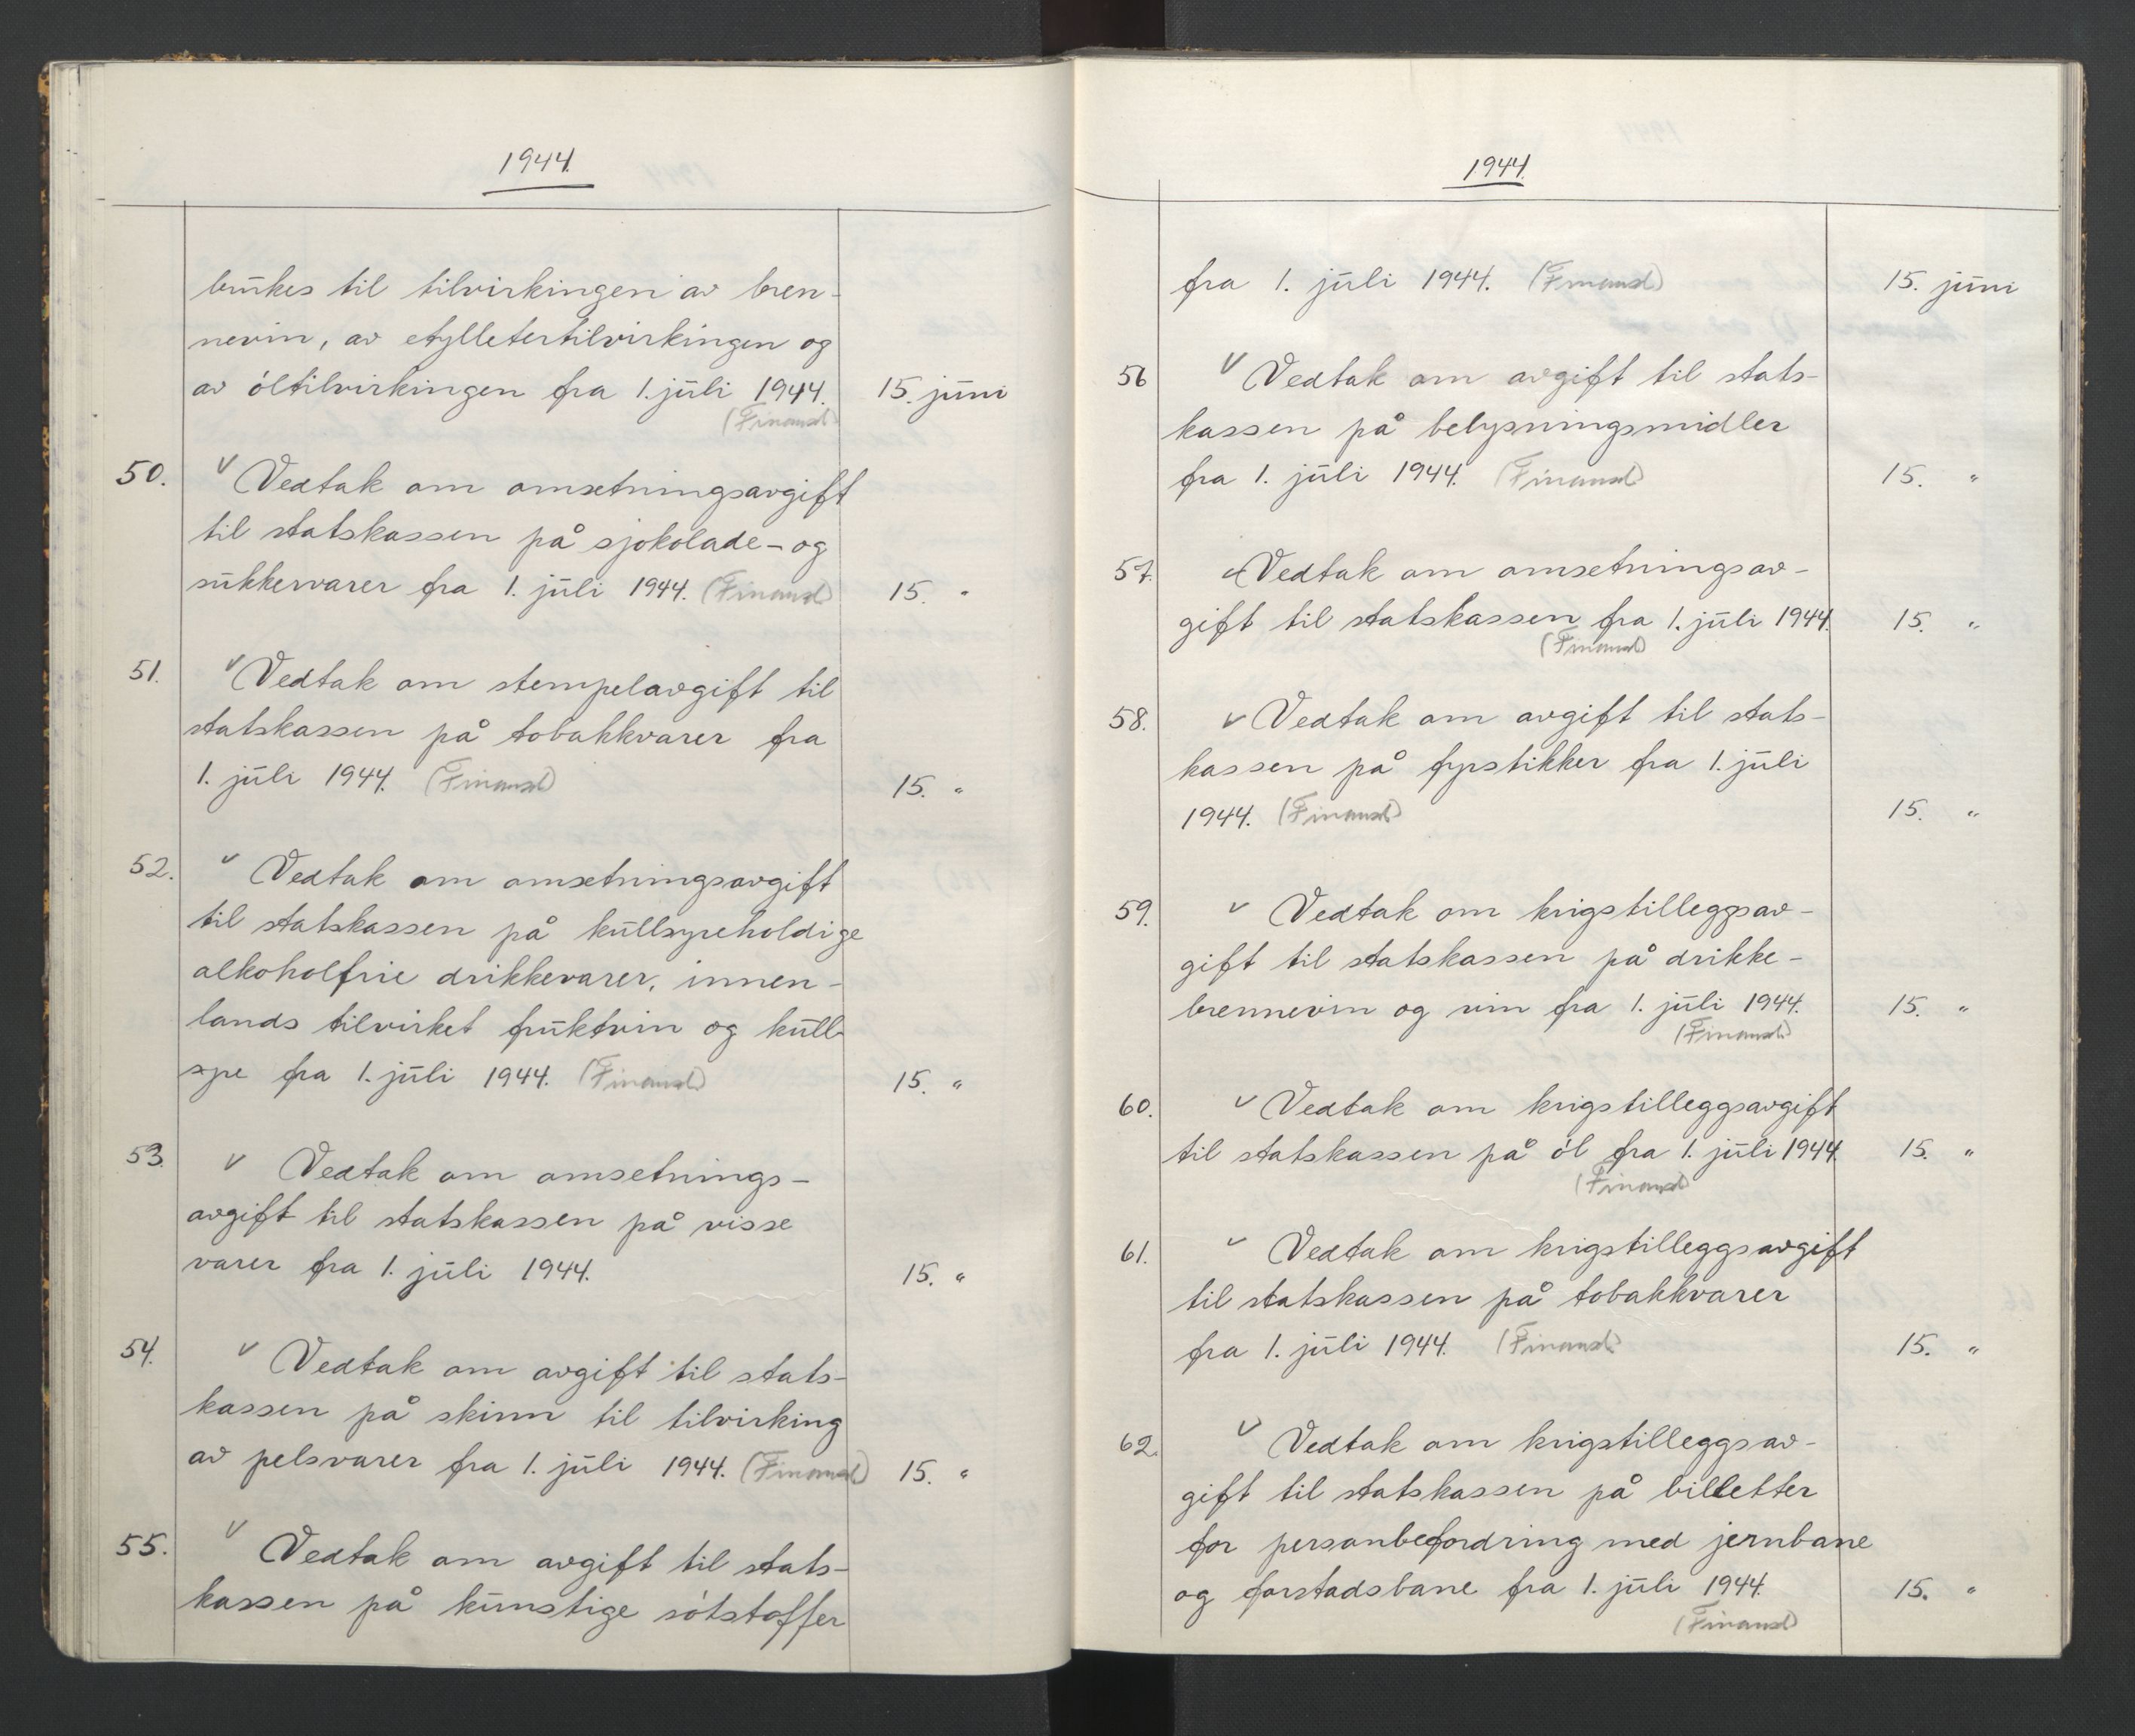 1944.
brukes til tilvirkingen av bren-
nevin, av etylletertilvirkingen og
av öltilvirkingen fra 1. juli 1944. 15. juni
(Finansd)
50. V Vedtak om omsetningsavgift
til statskassen på sjokolade- og
sukkervarer fra 1. juli 1944. (Finansd) 15. "
51. V Vedtak om stempelavgift til
statskassen på tobakkvarer fra
1. juli 1944. (Finansd) 15. "
52. V Vedtak om omsetningsavgift
til statskassen på kullsyreholdige
alkoholfrie drikkevarer, innen-
lands tilvirket fruktvin og kull-
syre fra 1. juli 1944. (Finansd) 15. "
53. V Vedtak om omsetnings-
avgift til statskassen på visse
varer fra 1. juli 1944. 15. "
54. V Vedtak om avgift til stats-
kassen på skinn til tilvirking
av pelsvarer fra 1. juli 1944. (Finansd) 15. "
55. V Vedtak om avgift til stats-
kassen på kunstige sötstoffer
1944.
fra 1. juli 1944. (Finansd) 15. juni
56 V Vedtak om avgift til stats-
kassen på belysningsmidler
fra 1. juli 1944. (Finansd) 15. "
57. V Vedtak om omsetningsav-
gift til statskassen fra 1. juli 1944. 15. "
(Finansd)
58. V Vedtak om avgift til stats-
kassen på fyrstikker fra 1. juli
1944. (Finansd) 15. "
59. V Vedtak om krigstilleggsav-
gift til statskassen på drikke-
brennevin og vin fra 1. juli 1944. 15. "
(Finansd)
60. V Vedtak om krigstilleggsavgift
til statskassen på öl fra 1. juli 1944. 15. "
(Finansd)
61. V Vedtak om krigstilleggsavgift
til statskassen på tobakkvarer
fra 1. juli 1944. (Finansd) 15. "
62. V Vedtak om krigstilleggsav-
gift til statskassen på billetter
for personbefordring med jernbane
og forstadsbane fra 1. juli 1944. 15. "
(Finansd)